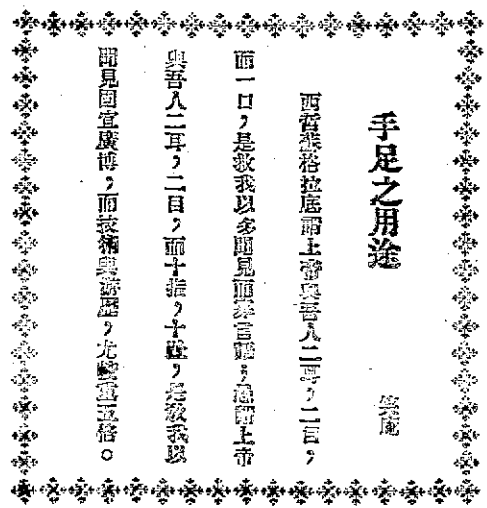 手足之用途
笑庵
西哲梭格拉底謂上帝與吾人二耳，二目，
而一口，是教我以多聞見而寡言語，愚謂上帝
與吾人二耳，二目，而十指，十趾，是教我以
聞見固宜廣博，而技術與游歷，尤